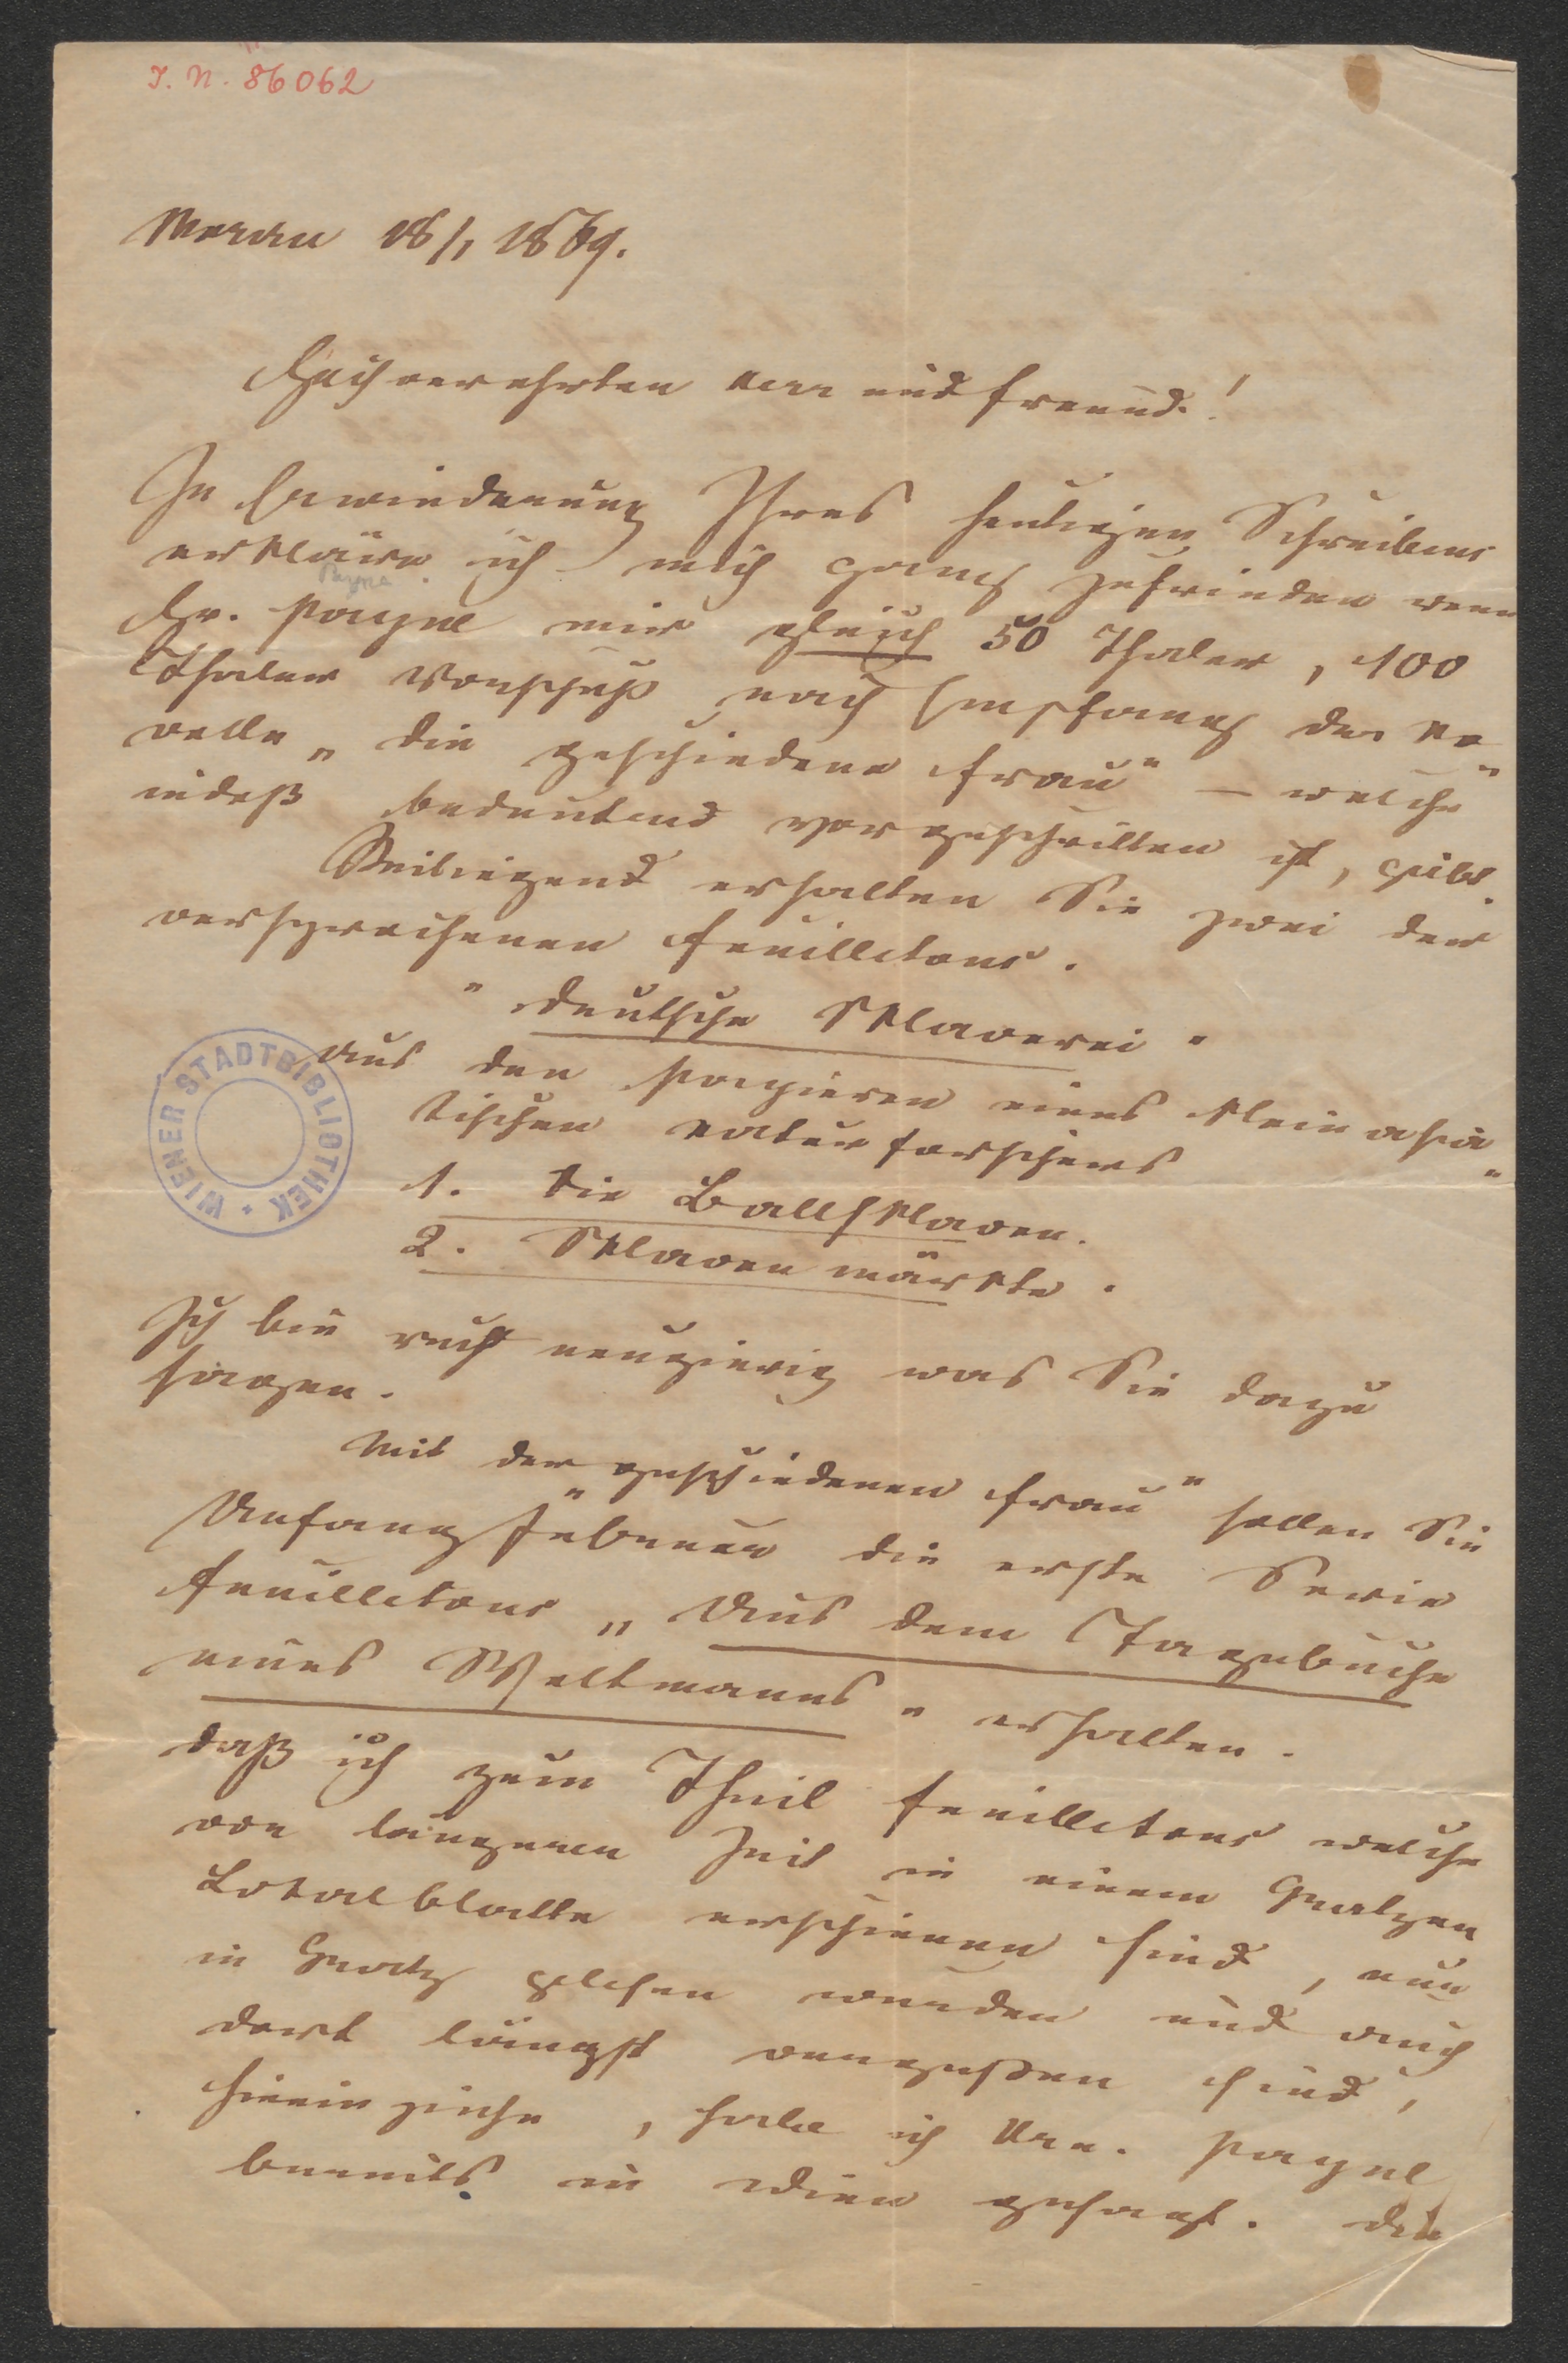 I. N. 86062
Meran 18/1 1869.
Hochverehrter Herr und Freund!
In Erwiederung Ihres heutigen Schreibens
erkläre ich mich ganz zufrieden wenn
Payne
Hr. Payne mir gleich 50 Thaler, 100
Thaler Vorschuß nach Empfang der No-
velle „die geschiedene Frau" – welche
indeß bedeutend vorgeschritten ist, gibt.
Beiliegend erhalten Sie zwei der
versprochenen Feuilletons.
"deutsche Sklaverei"
Aus den Papieren eines kleinasia-
tischen Naturforschers
1. Die Ballsklaven.
2. Sklavenmärkte.
WIENER STADTBIBLIOTHEK
Ich bin recht neugierig was Sie dazu
sagen.
Mit der „geschiedenen Frau" sollen Sie
Anfang Februar die erste Serie
Feuilletons „Aus dem Tagebuche
eines Weltmannes" erhalten.
daß ich zum Theil Feuilletons welche
vor längerer Zeit in einem Gratzer
Lokalblatte erschienen sind, nur
in Gratz gelesen wurden und auch
dort längst vergeßen sind,
hineinziehe, habe ich Hrn. Payne
bereits in Wien gesagt. die